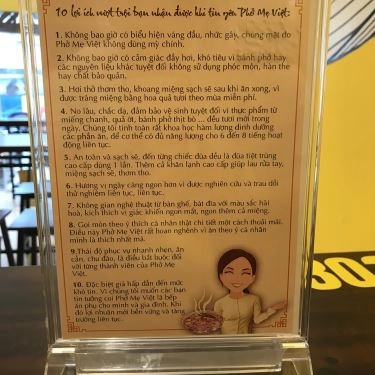 10 lợi ích vượt trội bạn nhận được khi tin yêu Phở Mẹ Việt:
1. Không bao giờ có biểu hiện váng đầu, nhức gáy, chúng mặt do
Phở Mẹ Việt không dùng mỳ chính.
2. Không bao giờ có cảm giác đầy hơi, khó tiêu vì bánh phở hay
các nguyên liệu khác tuyệt đối không sử dụng phóc môn, hàn the
hay chất bảo quản.
3. Hơi thở thơm tho, khoang miệng sạch sẽ sau khi ăn xong, vì
được tráng miệng bằng hoa quả tươi theo mùa miễn phí.
4. No lâu, chắc dạ, đảm bảo vệ sinh tuyệt đối vì thực phẩm từ
miếng chanh, quả ớt, bánh phở thịt bò ... đều tươi mới trong
ngày. Chúng tôi tính toán rất khoa học hàm lượng dinh dưỡng
các phần ăn, để cơ thể có đủ năng lượng cho 6 đến 8 tiếng hoạt
động liên tục.
5. An toàn và sạch sẽ, đến từng chiếc đũa đều là đũa tiệt trùng
cao cấp dùng 1 lần. Thêm cả khăn lạnh cao cấp giúp lau rửa tay,
miệng sạch sẽ, thơm tho.
6. Hương vị ngày càng ngon hơn vì được nghiên cứu và trau dồi
thử nghiệm liên tục, liên tục.
7. Không gian nghệ thuật từ bàn ghế, bát đĩa với màu sắc hài
hoà, kích thích vị giác khiến ngon mắt, ngon thêm cả miệng.
8. Gọi món theo ý thích cá nhân thật chi tiết một cách thoải mái.
Điều này Phở Mẹ Việt rất hoan nghênh vì ăn theo ý cá nhân
mình là thích nhất mà.
9.Thái độ phục vụ nhanh nhẹn, ân
cần, chu đáo, là điều bắt buộc đối
với từng thành viên của Phở Mẹ
Việt.
10. Đặc biệt giá hấp dẫn đến mức
khó tin. Vì chúng tôi muốn các bạn
tin tưởng coi Phở Mẹ Việt là bếp
ăn phụ cho mình và gia đình. Khi
đó lợi nhuận mới bền vững và tăng
trưởng liên tục.